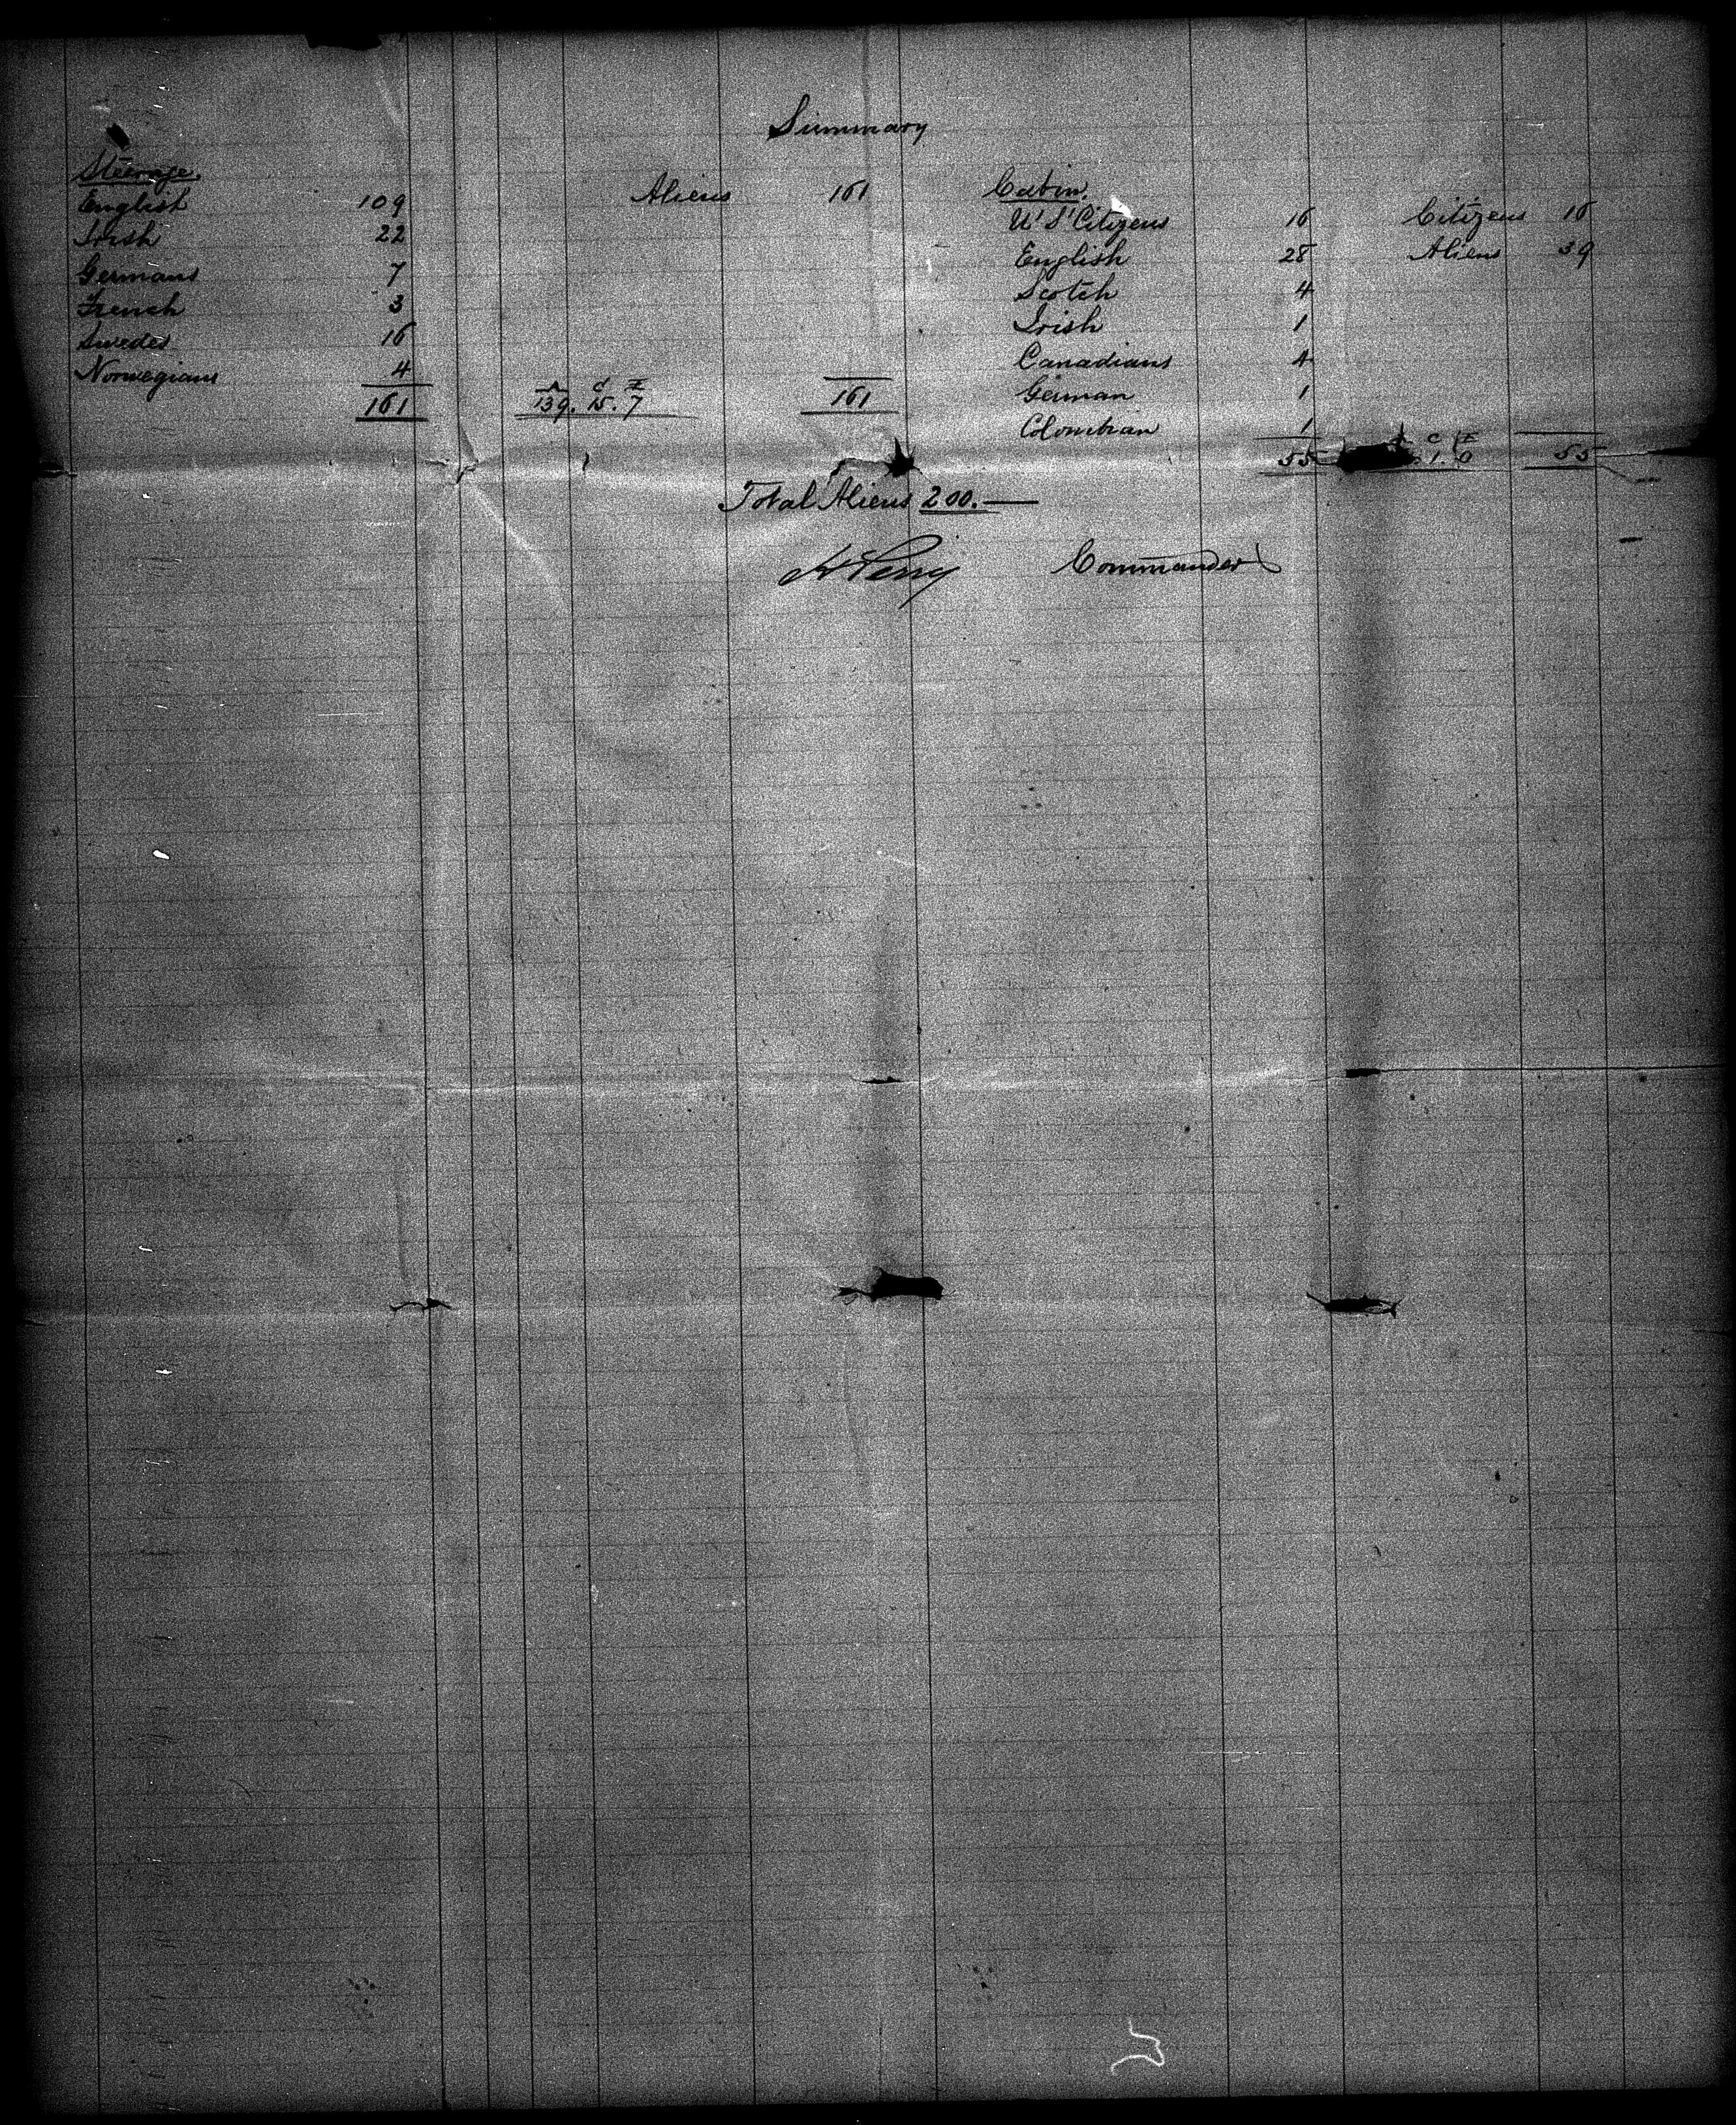 Summary
Steerage.
English 109
Irish 22
Germans 7
French 3
Swedes 16
Norwegians 4
161
Aliens 161
A C I
139. 15. 7
161
Cabin.
U' S' Citizens 16
English 28
Scotch 4
Irish 1
Canadians 4
German 1
Colombian 1
55
Citizens 16
Aliens 39
C I
1. 0
55
Total Aliens 200.—
H Perry Commander